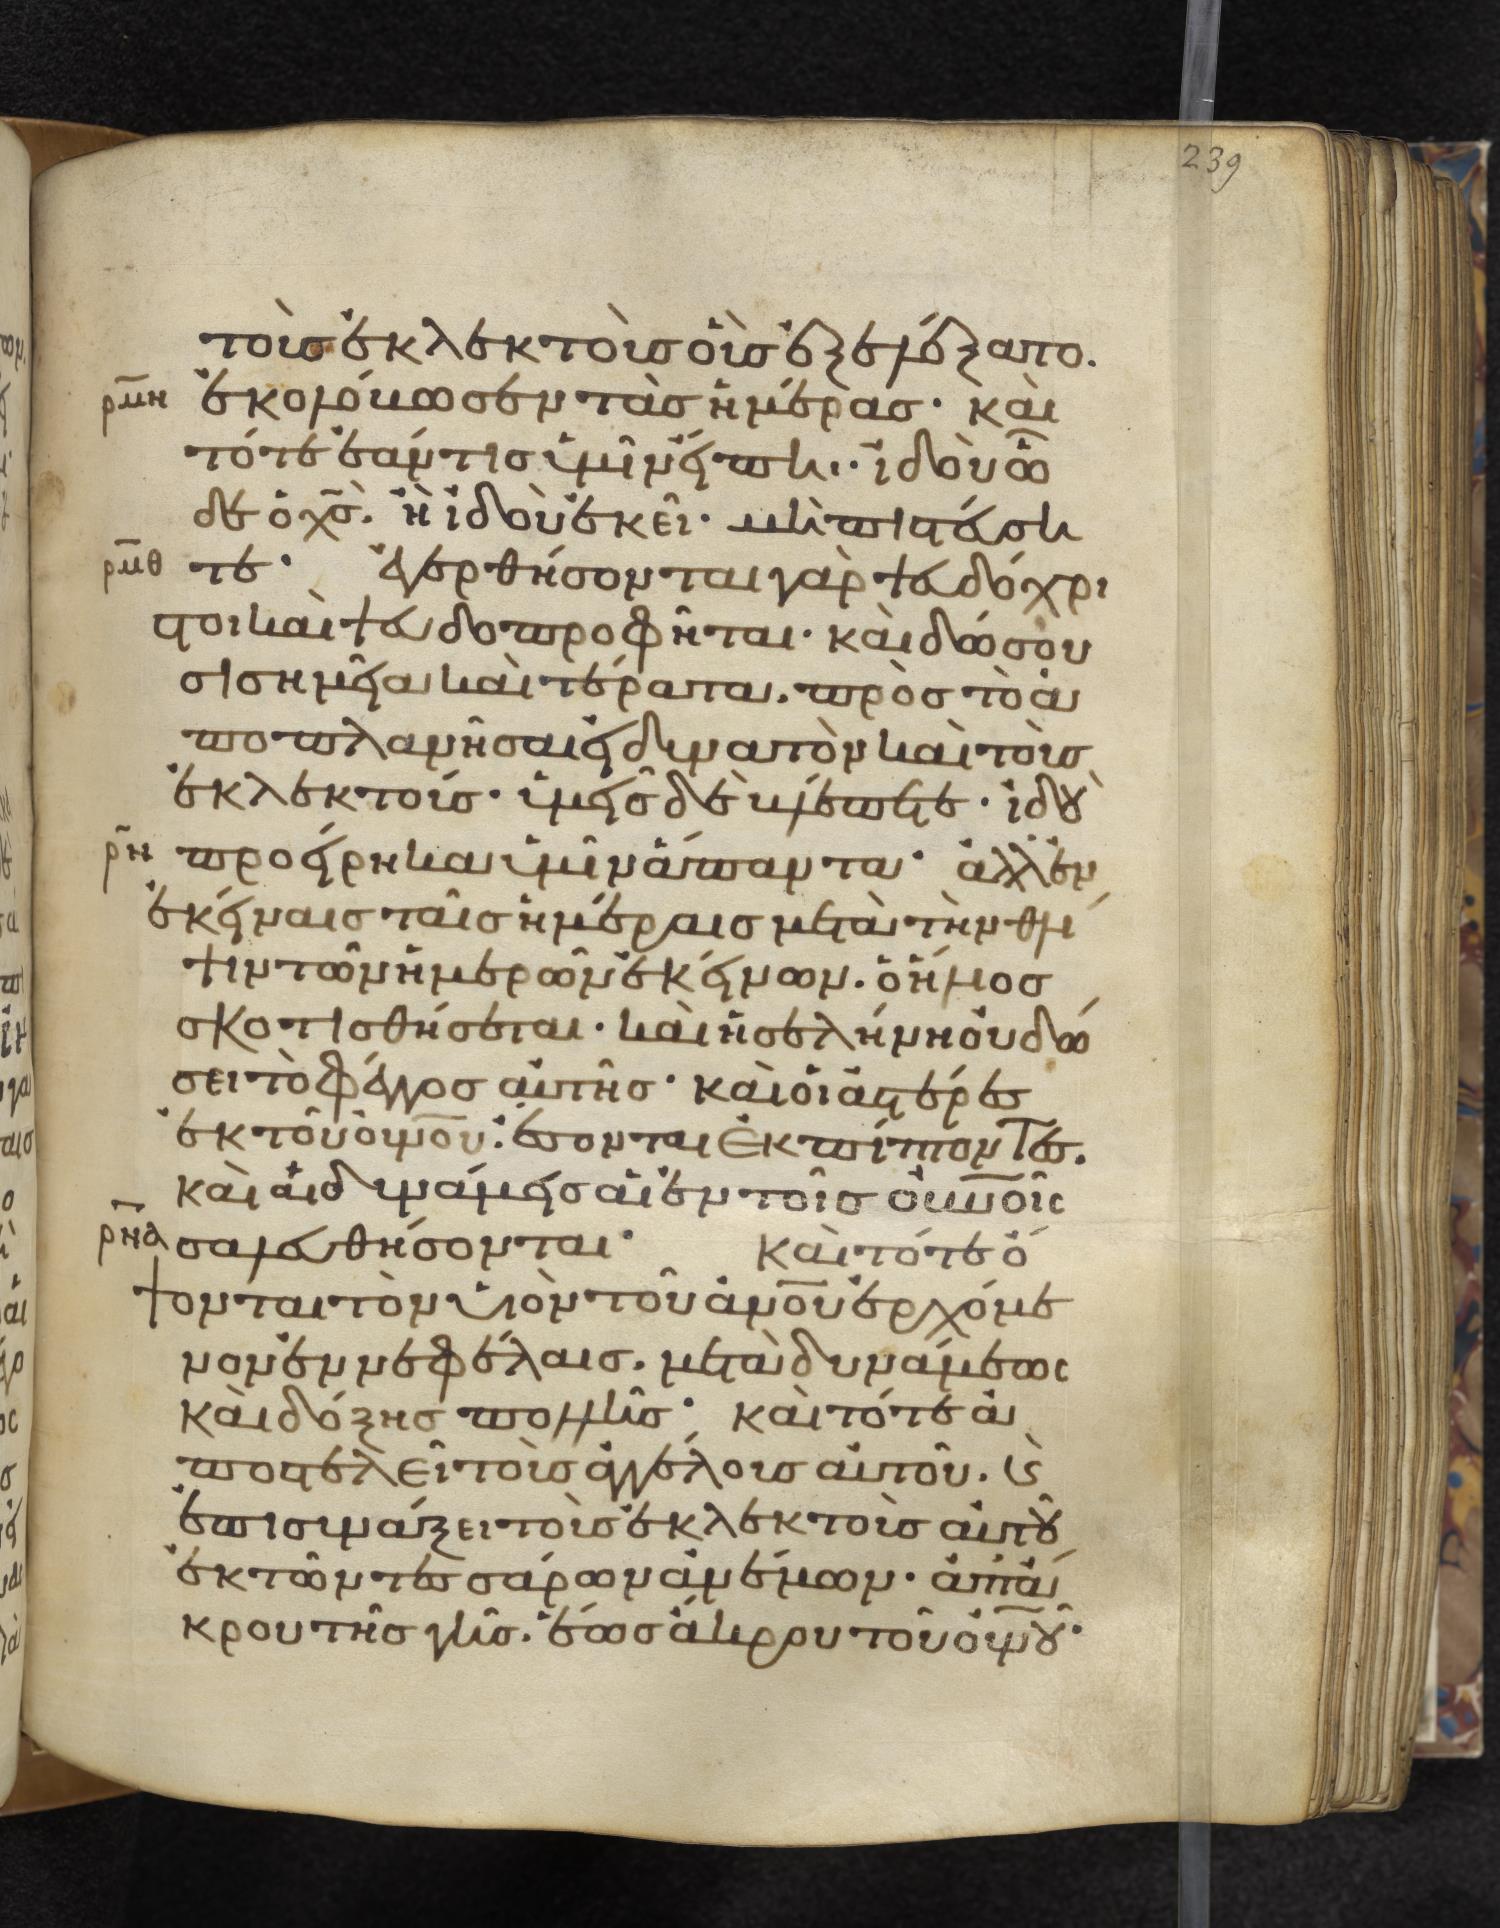 239
τοὺσ ἐκλεκτοὺσ οὓσ ἐξελέξατο.
ρμη ἐκολόβωσεν τὰσ ἡμέρασ· καὶ
τότε ἐάν τισ ὑμῖν εἴπη· ἰδοὺ ὧ
δε ὁ χσ̄. ἢ ἰδοὺ ἐκεῖ· μὴ πιστεύση
ρμθ τε· ἐγερθήσονται γὰρ ψευδόχρι
στοι καὶ ψευδοπροφῆται· καὶ δώσου
σι σημεῖα καὶ τέρατα. πρὸσ τὸ ἀ
ποπλανῆσαι εἰ δυνατὸν καὶ τοὺσ
ἐκλεκτούσ· ὑμεῖσ δὲ βλέπετε· ἰδοὺ
ρν προείρηκα ὑμῖν ἅπαντα· ἀλλ' ἐν
ἐκείναισ ταῖσ ἡμέραισ μετὰ τὴν θλί
ψιν τῶν ἡμερῶν ἐκείνων. ὁ ἥλιοσ
σκοτισθήσεται· καὶ ἡ σελήνη οὐ δώ
σει τὸ φέγγοσ αὐτῆσ· καὶ οἱ ἀστέρεσ
ἐκ τοῦ οὐνοῦ. ἔσονται ἐκπίπτοντεσ.
καὶ αἱ δυνάμεισ αἱ ἐν τοῖσ οὐνοῖσ
ρνα σαλευθήσονται· καὶ τότε ὄ
ψονται τὸν υἱὸν τοῦ ἀνου ἐρχόμε
νον ἐν νεφέλαισ. μετὰ δυνάμεωσ
καὶ δόξησ πολλῆσ· καὶ τότε ἀ
ποστελεῖ τοὺσ ἀγγέλουσ αὐτοῦ. ϗ
ἐπισυνάξει τοὺσ ἐκλεκτοὺσ αὐτοῦ
ἐκ τῶν τεσσάρων ἀνέμων. ἀπ' ἄ
κρου τῆσ γῆσ. ἕωσ ἄκρου τοῦ οὐνοῦ·